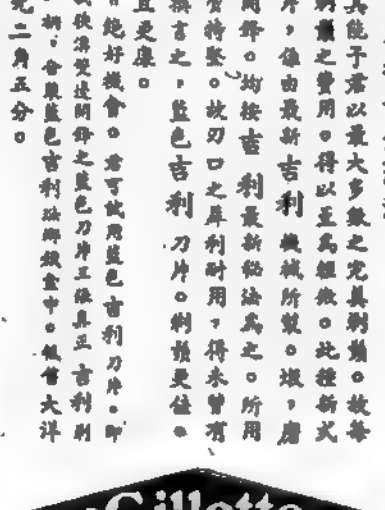 其能于君以最大多數之完具剃鬚。故每
之費用。得以至為輕微。此種新式
片，係由最新吉利機械所製。堅，磨
開鋒。均按吉利最新秘法為之。所用
特堅。故刃口之犀利耐用，得未曾有
言之，藍色吉利刀片。剃鬚更佳。
且更廉。
絕好機會。君可試用藍色吉利刀片。即
快溝雙邊開鋒之藍色刀片五張真正吉利剃
柄，合裝藍色吉利琺瑯鐵盒中。僅售大洋
元二角五分。
Gillette